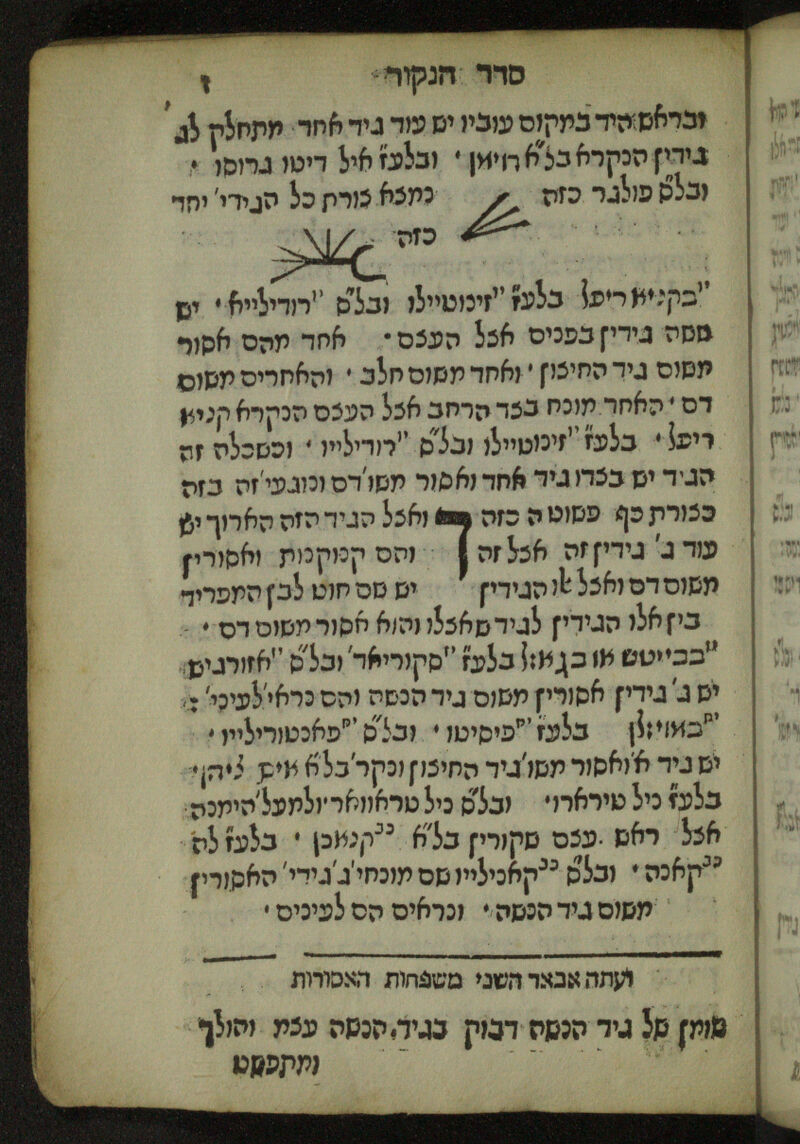 סדר הנקור
ז
ובראש היד במקום עוביו יש עוד גיד אחד מתחלק לג'
גידין הנקרא בל"א רוימן ׳ ובלעז איל דיטו גרוסו ׳
ובל"ס פולגר כזה נמצא צורת כל הגידי' יחד
כזה
ריפל בלעז "זינוטיילו ובל"ס "רודילייא ׳ יש
חמשה גידין בפנים אצל העצם ׳ אחד מהם אסור
משום גיד החיצון ׳ ואחד משום חלב ׳ והאחרים משום
דם ׳ האחד מונח בצד הרחב אצל העצם הנקרא קניא
ריפל ׳ בלעז "זינוטיילו ובל"ס "רודילייו ׳ וכשכלה זה
הגיד יש בצדו גיד אחד ואסור משו' דם ונוגעי' זה בזה
כצורת כף פשוט ה כזה ואצל הגיד הזה הארוך יש
עוד ג' גידין זה אצל זה והם קטנים ואסורין
משום דם ואצל אלו הגידין יש שם חוט לבן המפריד
בין אלו הגידין לגיד שאצלו והוא אסור משום דם ׳
בלעז "סקוריאד' ובל"ס "אזורגיש
יש ג' גידין אסורין משום גיד הנשה והם נראי' לעיני' :
בלעז "פיסיטו ׳ ובל"ס "פאנטוריליו ׳
יש גיד א' ואסור משו' גיד החיצון ונקר' בל"א
בלעז ניל טירארו' ובל"ס ניל טראוואר' ולמעל' הימנה
אצל ראש עצם שקורין בל"א קנאכן ׳ בלעז לה
קאנה ׳ ובל"ס קאניליו שם מונחי' ג' גידי' האסורין
משום גיד הנשה ׳ ונראים הם לעינים ׳
ועתה אבאר השני משפחות האסורות
שומן של גיד הנשה דבוק בגיד הנשה עצמו והולך
ומתפשט